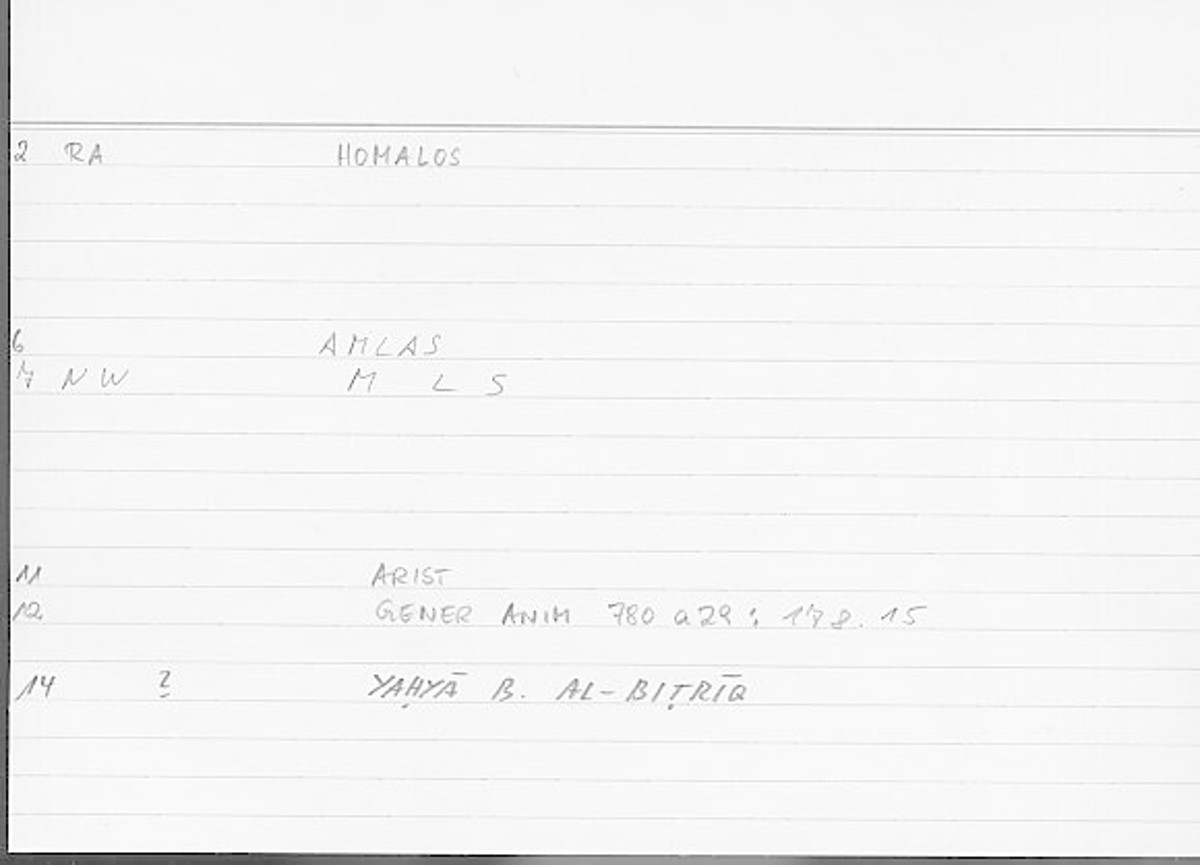 2 RA HOMALOS
6 AMLAS
7 NW M L S
11 ARIST
12 GENER ANIM 780 a29 : 178.15
14 2 YAḤYĀ B. AL-BIṬRĪQ